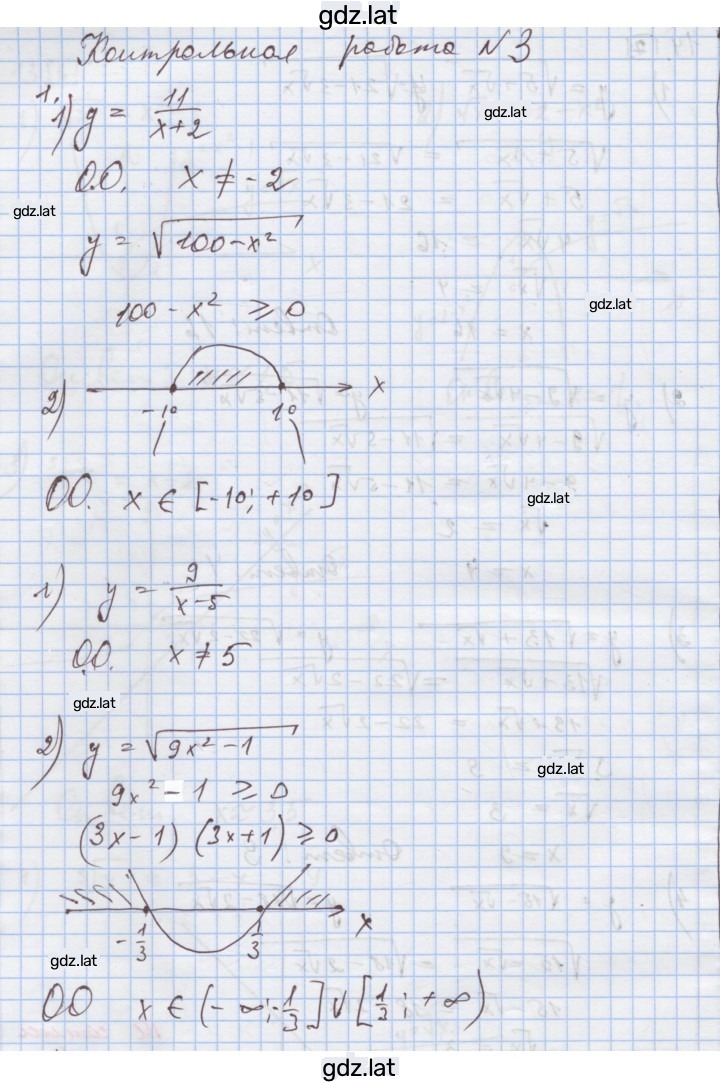 gdz.lat
Контрольная работа №3
1.
1) y = 11/(x+2)
gdz.lat
О.О. x ≠ -2
gdz.lat
y = √(100-x²)
100 - x² ≥ 0
gdz.lat
2) -10 10 x
О.О. x ∈ [-10; +10]
gdz.lat
1) y = 9/(x-5)
О.О. x ≠ 5
gdz.lat
2) y = √(9x² - 1)
gdz.lat
9x² - 1 ≥ 0
(3x-1) (3x+1) ≥ 0
-1/3 1/3 x
gdz.lat
О.О x ∈ (-∞; -1/3] ∪ [1/3; +∞)
gdz.lat